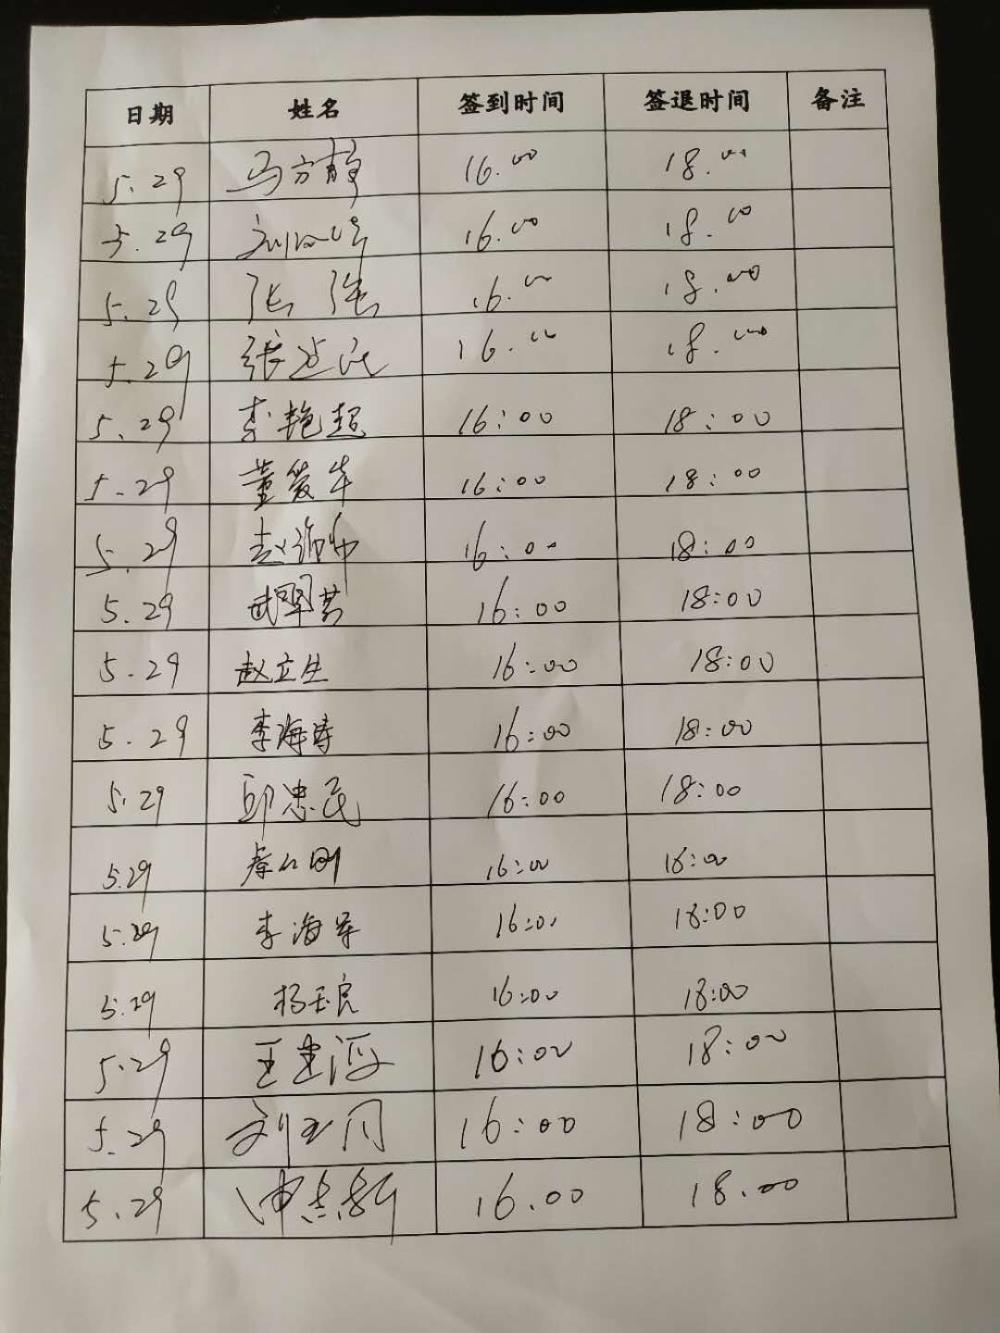 日期 姓名 签到时间 签退时间 备注
5.29 马方静 16.00 18.00
5.29 16.00 18.00
5.29 张强 16.00 18.00
5.29 张 16.00 18.00
5.29 李艳超 16:00 18:00
5.29 董发牛 16:00 18:00
5.29 赵 16:00 18:00
5.29 武翠芳 16:00 18:00
5.29 赵立生 16:00 18:00
5.29 李海涛 16:00 18:00
5.29 邱忠民 16:00 18:00
5.29 16:00 16:00
5.29 李海军 16:00 18:00
5.29 杨玉良 16:00 18:00
5.29 王建 16:00 18:00
5.29 刘玉同 16:00 18:00
5.29 16.00 18.00